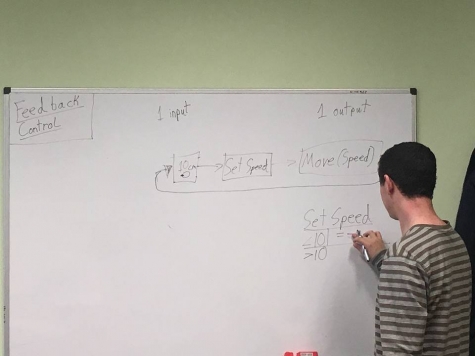 Feedback
Control
1 input
1 output
10cm
Set Speed
Move(Speed)
Set Speed
<10 =
>10